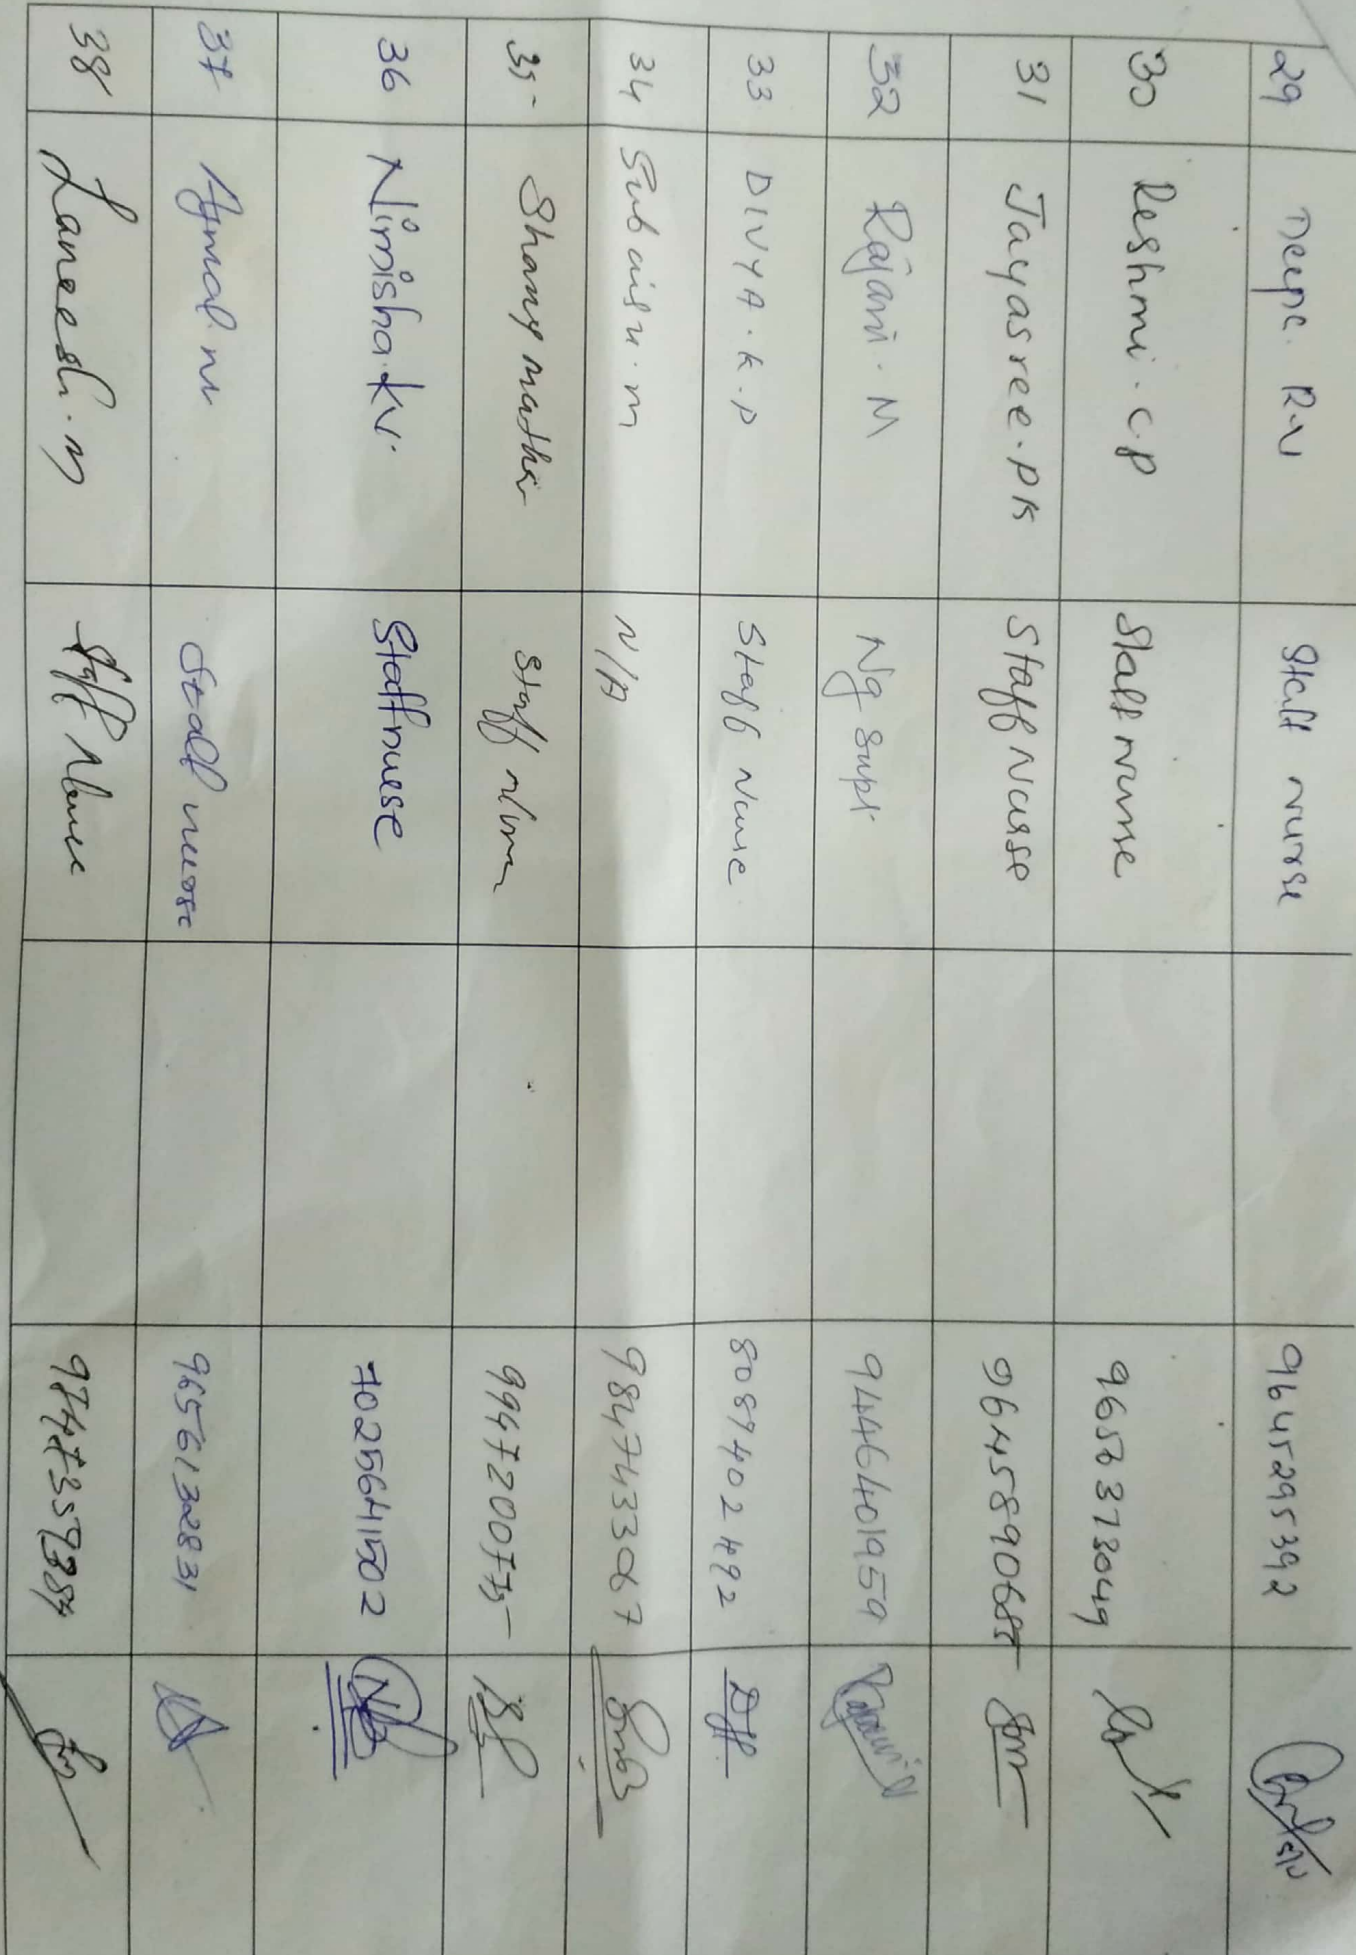 29 Deepa. R.V Staff nurse 9645295392
30 Reshmi. C.P Staff nurse 9656373049
31 Jayasree. PK Staff Nurse 9645890685
32 Rajani. M Ng Supt. 9446401959
33 DIVYA. K. P Staff Nurse 8089402492
34 Subaisu. m N/A 9847433067
35 Shamy mathai Staff nurse
36 Nimisha. kv. Staffnurse 7025641502
37 Ajmal. m Staff nurse 9656132831
38 Laneesh. m Staff Nurse